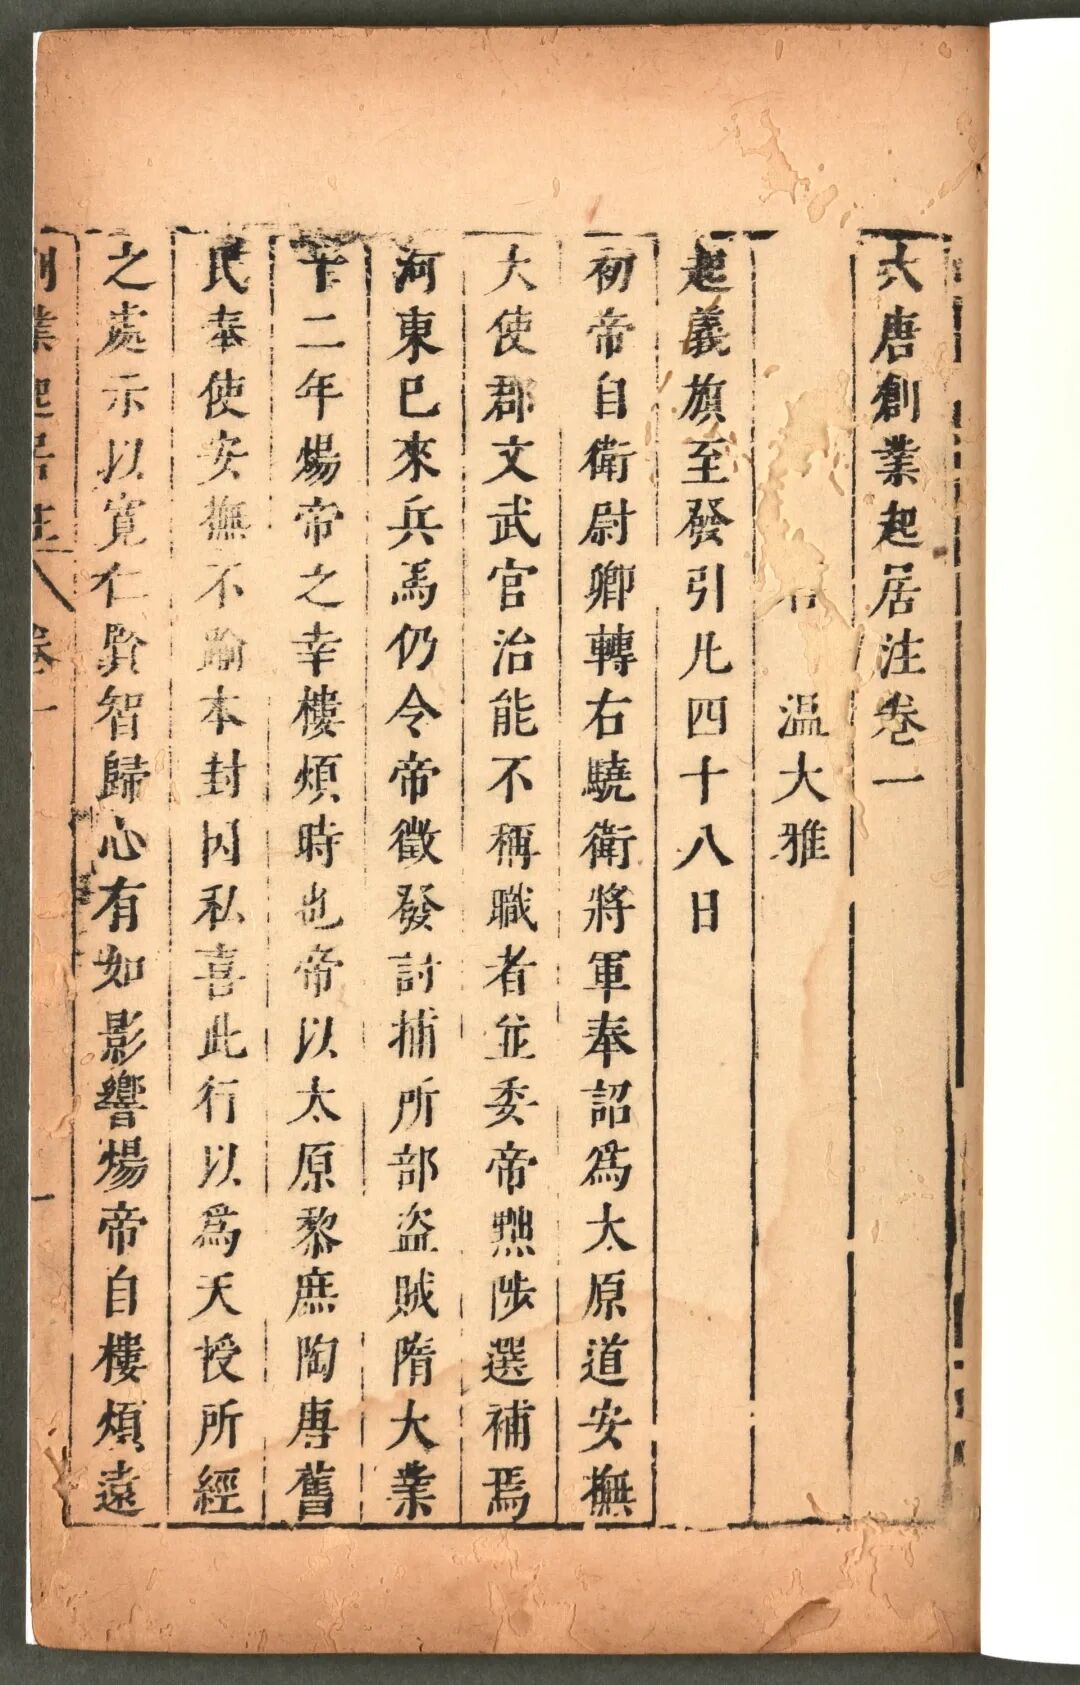 大唐創業起居注卷一
温大雅
起義旗至發引凡四十八日
初帝自衛尉卿轉右驍衛將軍奉詔爲太原道安撫
大使郡文武官治能不稱職者並委帝黜陟選補焉
河東已來兵馬仍令帝徵發討捕所部盜賊隋大業
十二年煬帝之幸樓煩時也帝以太原黎庶陶唐舊
民奉使安撫不踰本封因私喜此行以爲天授所經
之處示以寛仁賢智歸心有如影響煬帝自樓煩遠
創業起居注 卷一 一